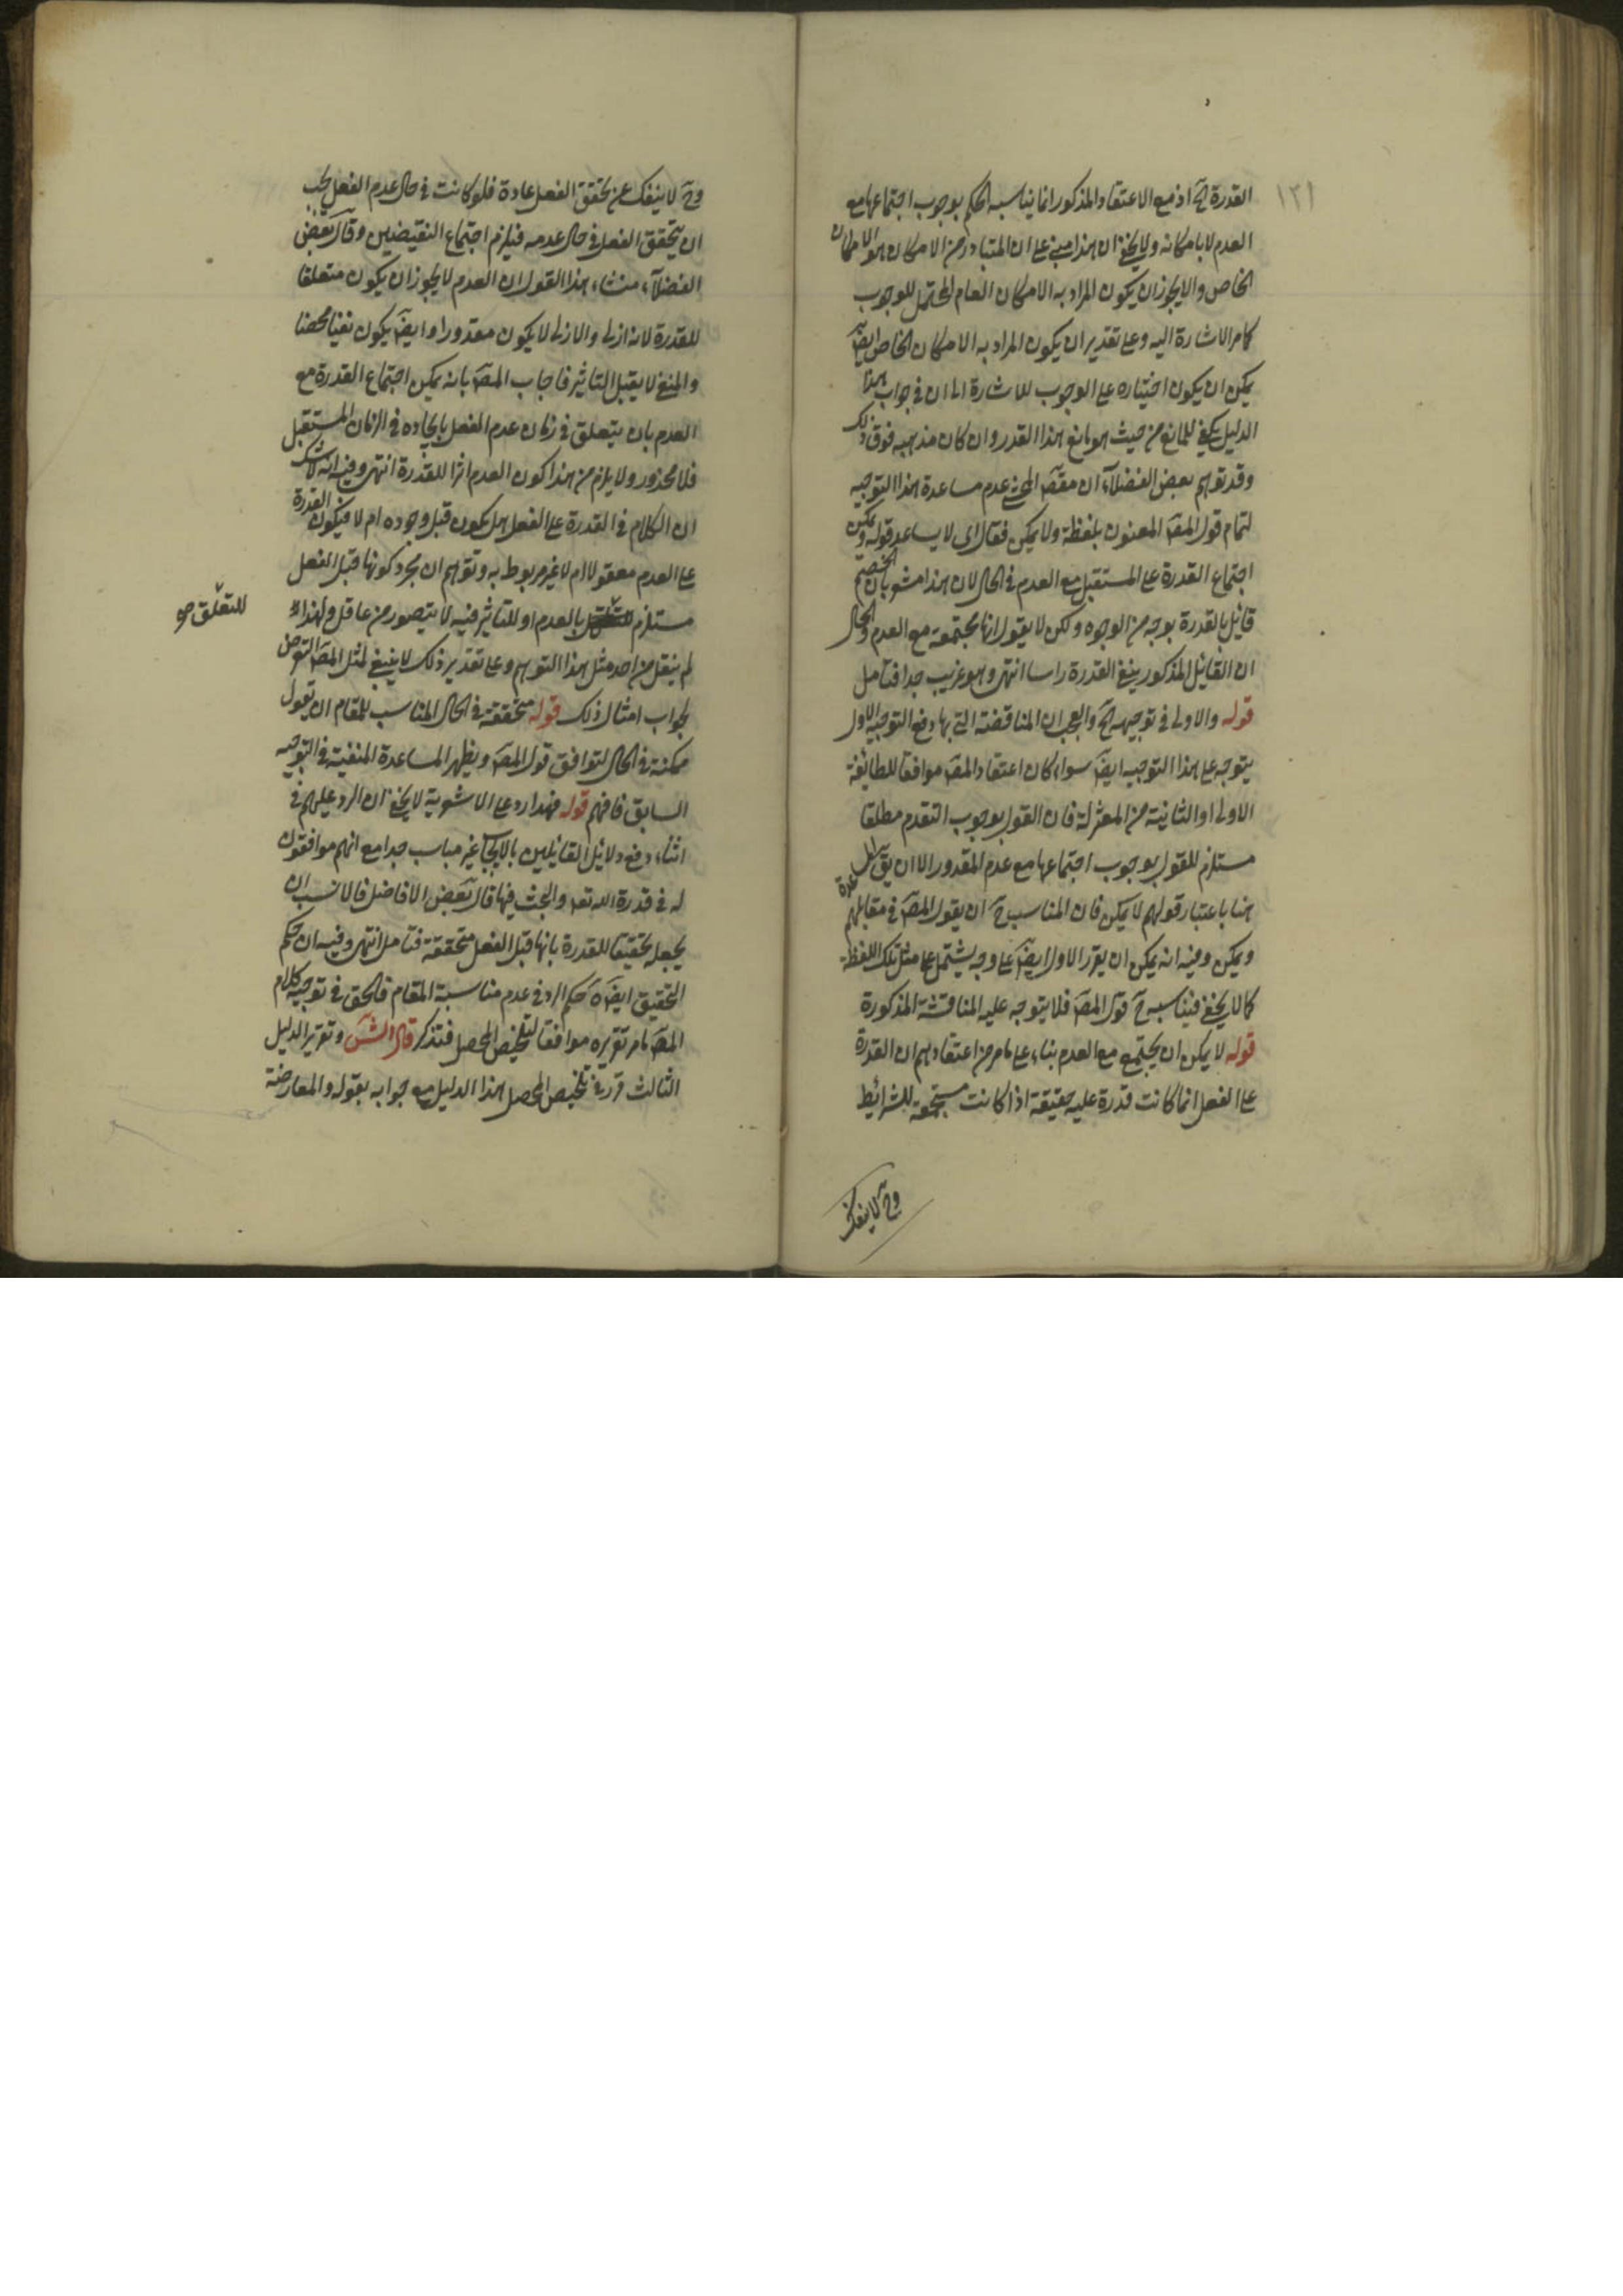 ١٢١
القدرة ح اذ مع الاعتقاد المذكور انما يناسبه الحكم بوجوب اجتماعها مع
العدم لا بامكانه ولا يخفى ان هذا مبنى على ان المتبادر من الامكان هو الامكان
الخاص والا يجوز ان يكون المراد به الامكان العام المحتمل للوجوب
كما مر الاشارة اليه وعلى تقدير ان يكون المراد به الامكان الخاص ايضا
يمكن ان يكون اختياره على الوجوب للاشارة الى ان فى جواب هذا
الدليل يكفى للمانع من حيث هو مانع هذا القدر وان كان مذهبه فوق ذلك
وقد توهم بعض الفضلاء ان مقص المحشى عدم مساعدة هذا التوجيه
لتمام قول المص المعنون بلفظة ولا يمكن فقال اى لا يساعد قوله ويمكن
اجتماع القدرة على المستقبل مع العدم فى الحال لان هذا مشعر بان الخصم
قائل بالقدرة بوجه من الوجوه ولكن لا يقول انها مجتمعة مع العدم والحال
ان القائل المذكور ينفى القدرة راسا انتهى وهو غريب جدا فتامل
قوله والاولى فى توجيهه ح والعجب ان المناقضة التى بها دفع التوجيه الاول
يتوجه على هذا التوجيه ايض سواء كان اعتقاد المص موافقا للطائفة
الاولى او الثانية من المعتزلة فان القول بوجوب التقدم مطلقا
مستلزم للقول بوجوب اجتماعها مع عدم المقدور الا ان يق المساعدة
هنا باعتبار قولهم لا يمكن فان المناسب ح ان يقول المص فى مقابلهم
ويمكن وفيه انه يمكن ان يقرر الاول ايض على وجه يشتمل على مثل تلك اللفظة
كما لا يخفى فيناسبه ح قول المص فلا يتوجه عليه المناقشة المذكورة
قوله لا يمكن ان يجتمع مع العدم بناء على ما مر من اعتقادهم ان القدرة
على الفعل انما كانت قدرة عليه حقيقة اذا كانت مستجمعة للشرائط
وح لا ينفك
وح لا ينفك عن تحقق الفعل عادة فلو كانت فى حال عدم الفعل يجب
ان يتحقق الفعل فى حال عدمه فيلزم اجتماع النقيضين وقال بعض
الفضلاء منشاء هذا القول ان العدم لا يجوز ان يكون متعلقا
للقدرة لانه ازلى والازلى لا يكون مقدورا وايض يكون نفيا محضا
والمنفى لا يقبل التاثير فاجاب المص بانه يمكن اجتماع القدرة مع
العدم بان يتعلق فى زمان عدم الفعل بايجاده فى الزمان المستقبل
فلا محذور ولا يلزم من هذا كون العدم اثرا للقدرة انتهى وفيه انه لا شك
ان الكلام فى القدرة على الفعل هل يكون قبل وجوده ام لا فيكون القدرة
على العدم معقولا ام لا غير مربوط به وتوهم ان مجرد كونها قبل الفعل
مستلزم بالعدم او للتاثير فيه لا يتصور من عاقل ولهذا
للتعلق صح
لم ينقل من احد مثل هذا التوهم وعلى تقدير ذلك لا ينبغى لمثل المص التعرض
لجواب امثال ذلك قوله متحققة فى الحال المناسب للمقام ان يقول
ممكنة فى الحال لتوافق قول المص ويظهر المساعدة المنفية فى التوجيه
السابق فافهم قوله فهذا رد على الاشعرية لا يخفى ان الرد عليهم فى
اثناء دفع دلائل القائلين بالايجاب غير مناسب جدا مع انهم موافقون
له فى قدرة الله تعـ والبحث فيها قال بعض الافاضل فالانسب ان
يجعله تحقيقا للقدرة بانها قبل الفعل متحققة فتامل انتهى وفيه ان حكم
التحقيق ايضا حكم الرد فى عدم مناسبة المقام فالحق فى توجيه كلام
المص ما مر تقريره موافقا لتلخيص المحصل فتذكر قال الش وتقرير الدليل
الثالث قرر فى تلخيص المحصل هذا الدليل مع جوابه بقوله والمعارضة